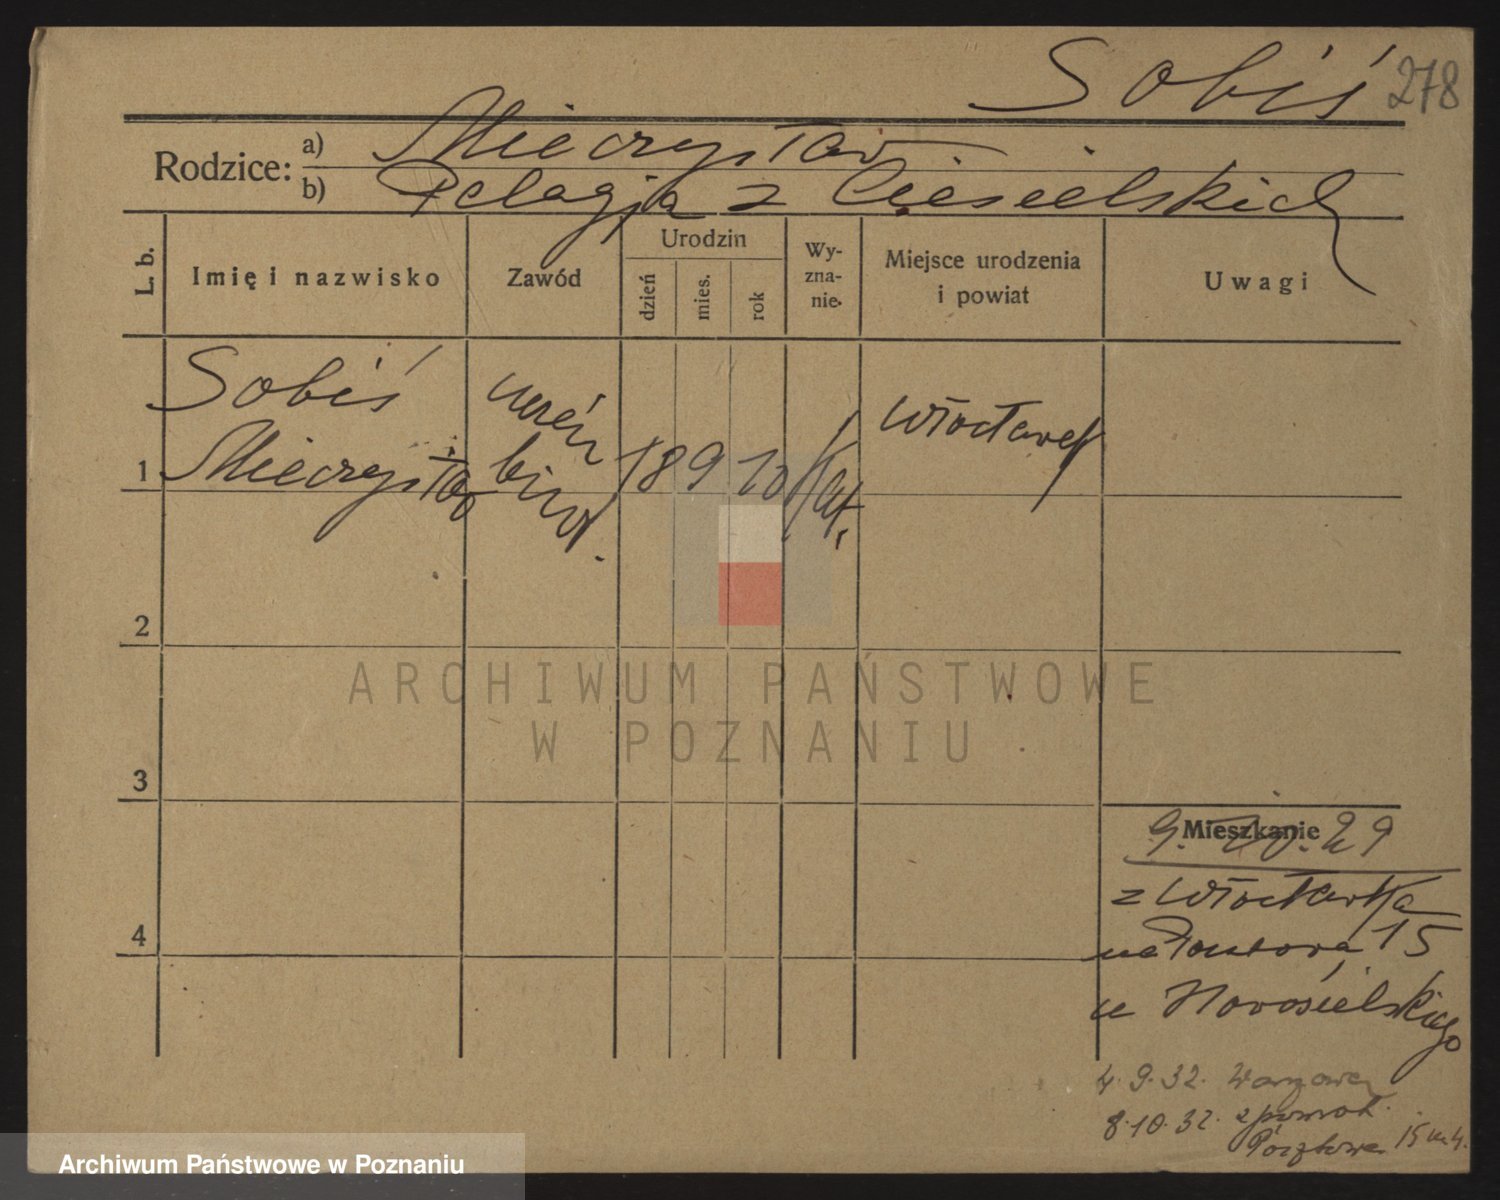 Sobiś 278
Rodzice: a) Mieczysław
b) Pelagja z Ciesielskich
L. b. Imię i nazwisko Zawód Urodzin dzień mies. rok Wy-zna-nie Miejsce urodzenia i powiat Uwagi
Sobiś uczeń Włocławek
1 Mieczysław biur. 1 8 9 10 kat.
2
ARCHIWUM PAŃSTWOWE
W POZNANIU
3
Mieszkanie
9. 29
z Włocławka
15
u Nowosielskiego
4
4.9.32. Warszawa
8.10.32. z powrot.
Pocztowa 15 m 4.
Archiwum Państwowe w Poznaniu